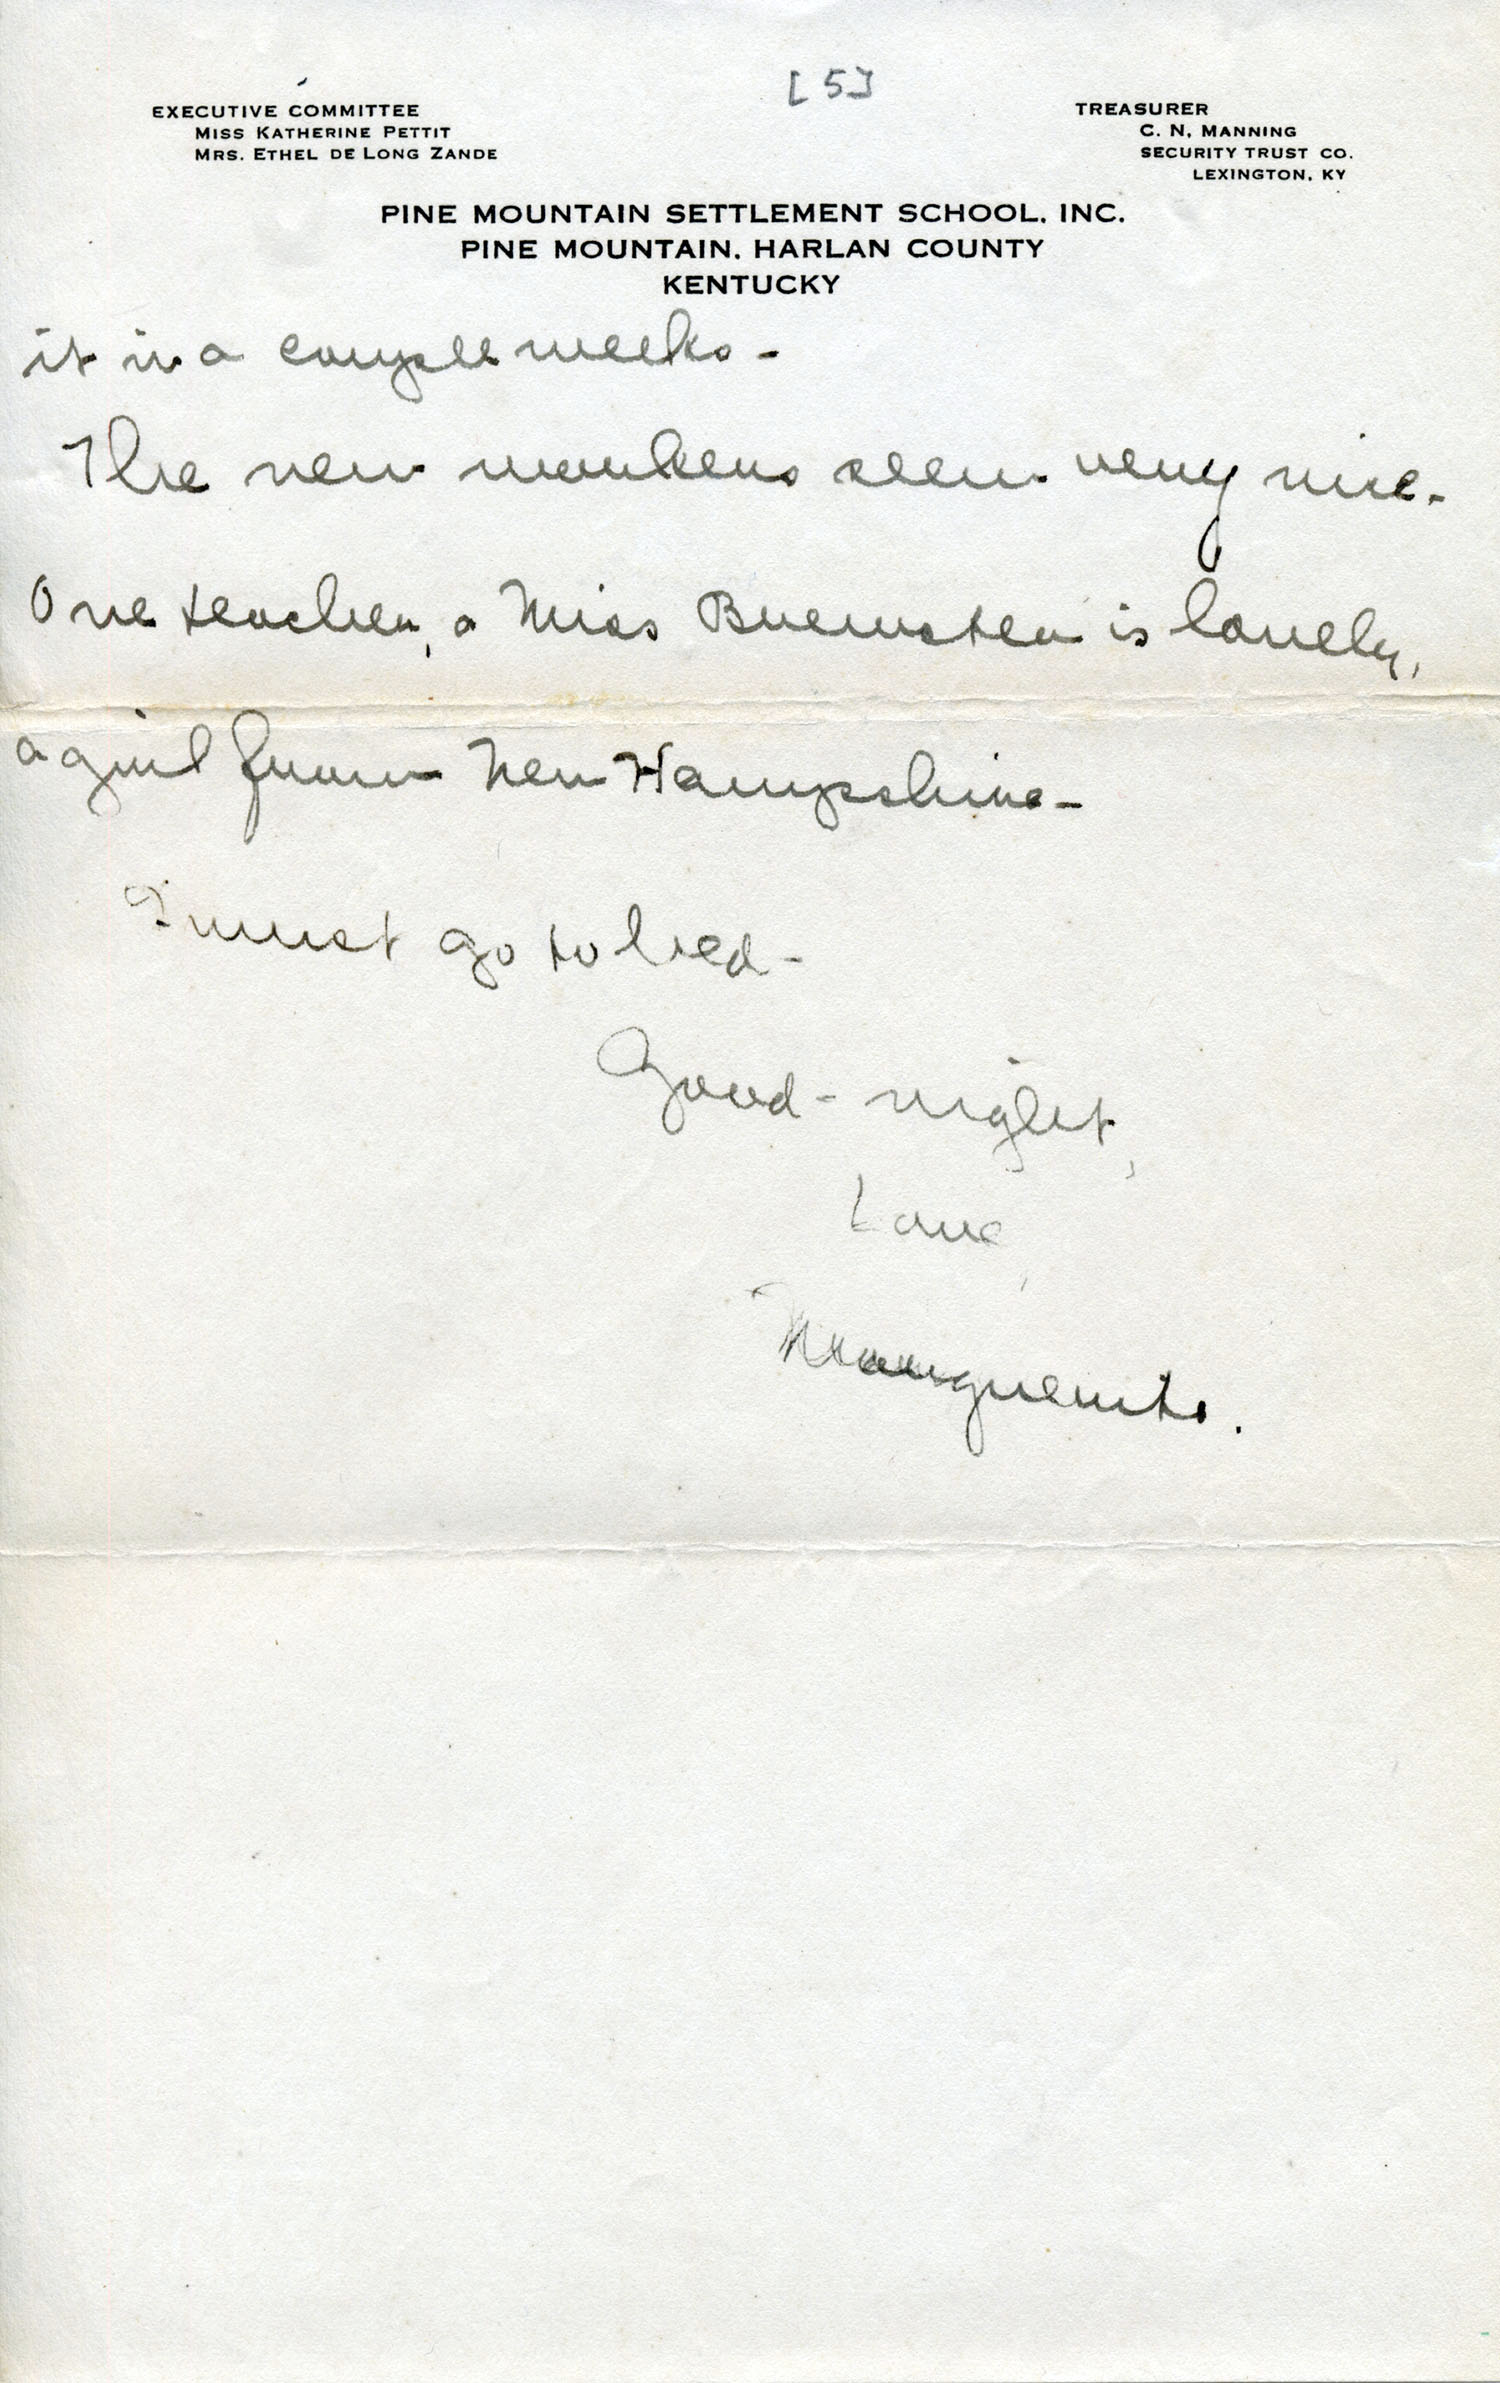 [5]
EXECUTIVE COMMITTEE
MISS KATHERINE PETTIT
MRS. ETHEL DE LONG ZANDE
TREASURER
C. N. MANNING
SECURITY TRUST CO.
LEXINGTON, KY
PINE MOUNTAIN SETTLEMENT SCHOOL, INC.
PINE MOUNTAIN, HARLAN COUNTY
KENTUCKY
it in a couple weeks -
The new workers seem very nice.
One teacher, a Miss Brewster is lovely,
a girl from New Hampshire -
I must go to bed -
Good-night,
Love,
Marguerite.